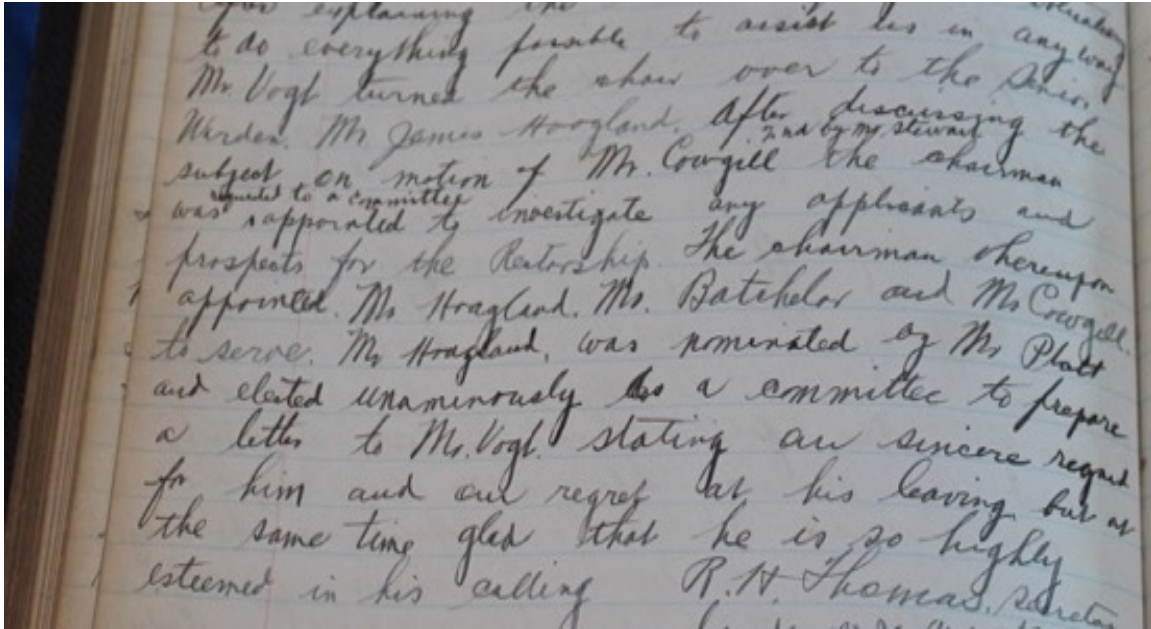 After explaining the
to do everything possible to assist us in any way
Mr. Vogt turned the chair over to the Senior
Warden, Mr. James Hoagland. After discussing the
2nd by Mr. Stewart
subject on motion of Mr. Cowgill the chairman
requested to a committee
was appointed to investigate any applicants and
prospects for the Rectorship. The chairman thereupon
appointed. Mr Hoagland. Mr. Batchelor and Mr Cowgill.
to serve. Mr Hoagland, was nominated by Mr Platt
and elected unaminously as a committee to prepare
a letter to Mr. Vogt stating our sincere regard
for him and our regret at his leaving but at
the same time glad that he is so highly
esteemed in his calling R. H. Thomas, Secretary